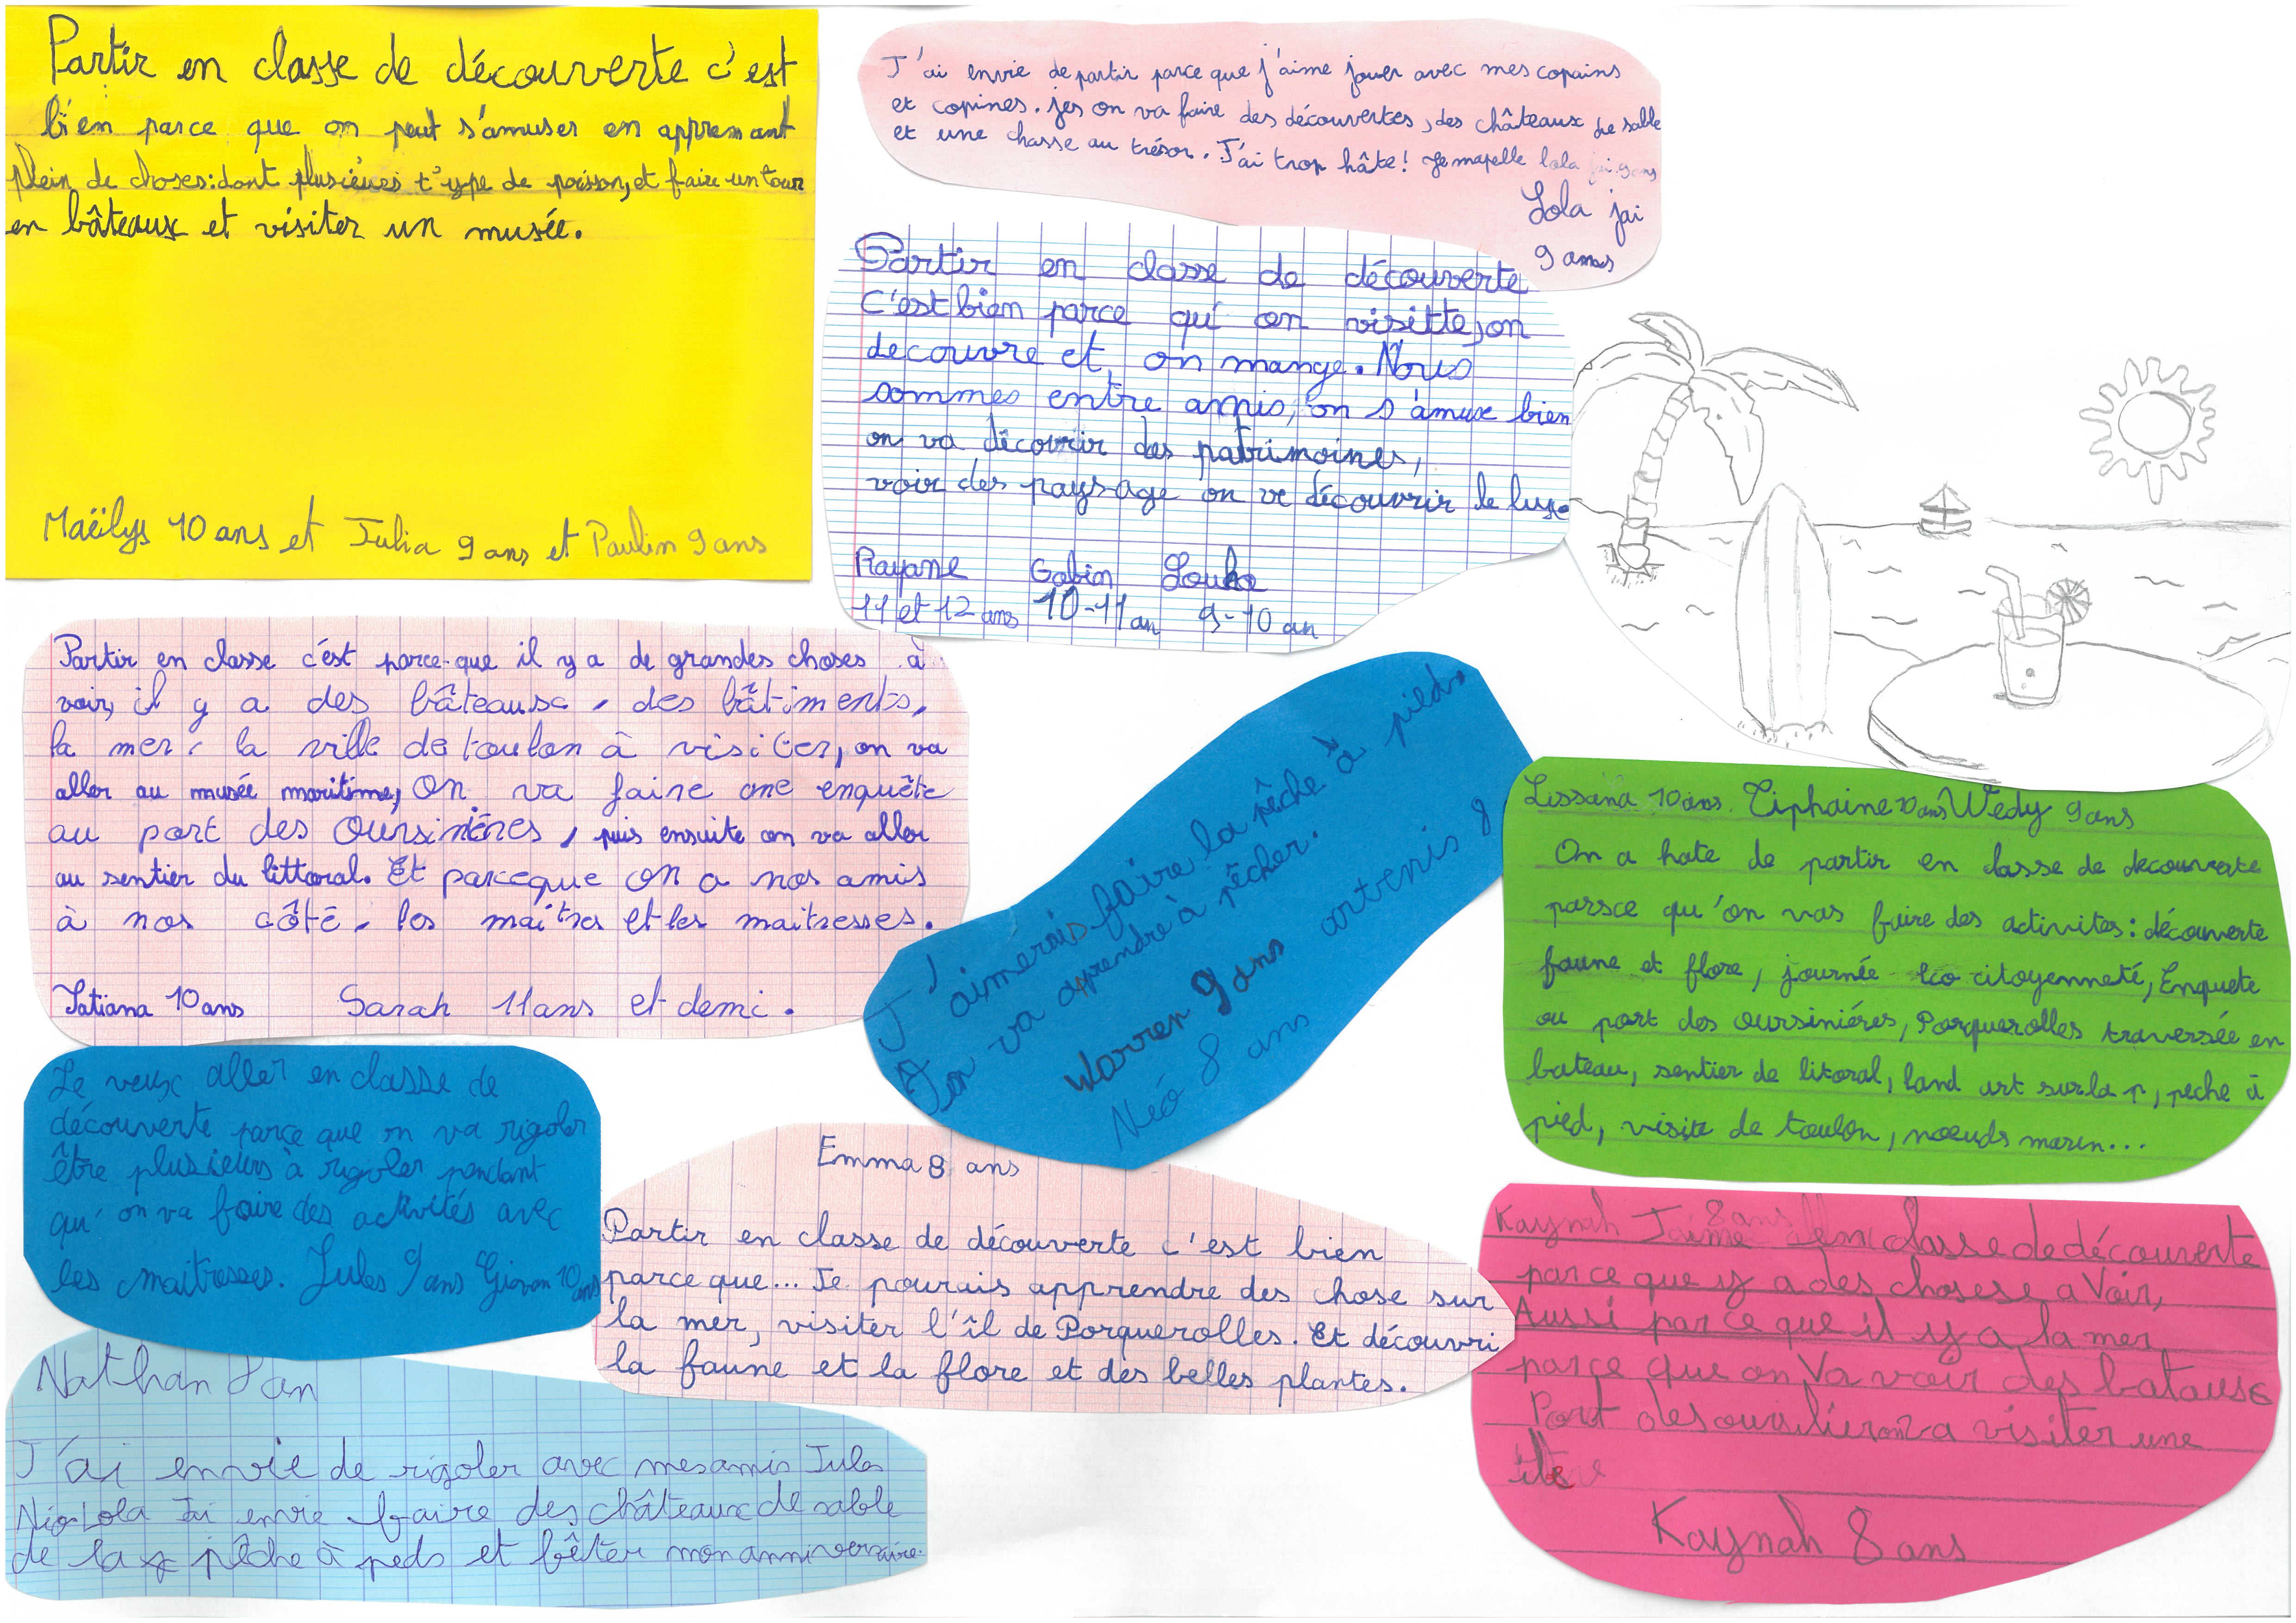 Partir en classe de découverte c'est
bien parce que on peut s'amuser en apprenant
plein de choses: dont plusieurs t'ype de poisson, et faire un tour
en bâteaux et visiter un musée.
Maëilys 10 ans et Julia 9 ans et Paulin 9 ans
J'ai envie de partir parce que j'aime jouer avec mes copains
et copines. jes on va faire des découvertes, des châteaux de sable
et une chasse au trésor. J'ai trop hâte! Je mapelle lola jai 9 ans
Lola jai
9 ans
Partir en classe de découverte
C'est bien parce qu'on visitte, on
decouvre et on mange. Nous
sommes entre amis, on s'amuse bien
on va découvrir des patrimoines,
voir des paysage on va découvrir le luxe
Rayane Gabin Louka
11 et 12 ans 10-11 an 9-10 an
Partir en classe c'est parce-que il y a de grandes choses à
voir, il y a des bâteaux, des bâtiments,
la mer, la ville de toulon à visiter, on va
aller au musée maritime, On va faire une enquête
au port des Oursinières, puis ensuite on va aller
au sentier du littoral. Et parceque on a nos amis
à nos côté, les maîtres et les maitresses.
Tatiana 10 ans Sarah 11 ans et demi.
J'aimerais faire la pêche à pieds.
on va apprendre à pêcher.
Warren 9 ans artenis 8
Néo 8 ans
Lissana 10 ans. Tiphaine 10 ans Wedy 9 ans
On a hate de partir en classe de decouverte
parsce qu'on vas faire des activites: découverte
faune et flore, journée éco citoyenneté, Enquete
au port des oursiniéres, Porquerolles traversée en
bateau, sentier de litoral, land art sur la p, peche à
pied, visite de toulon, noeuds maren...
Je veux aller en classe de
découverte parce que on va rigoler
être plusieurs à rigoler pendant
qu'on va faire des activités avec
les maitresses. Jules 9 ans Giovan 10 ans
Emma 8 ans
Partir en classe de découverte c'est bien
parce que... Je pourais apprendre des chose sur
la mer, visiter l'îl de Porquerolles. Et découvri
la faune et la flore et des belles plantes.
Kaynah 8 ans
J'aime en classe de découverte
parce que y a des choses a Voir,
Aussi parce que il y a la mer
parce que on Va voir des bataux
Port des va visiter une
Kaynah 8 ans
Nathan 8 an
J'ai envie de rigoler avec mes amis Jules
Néo Lola Jai envie faire des châteaux de sable
de la pêche à pieds et fêter mon anniversaire.